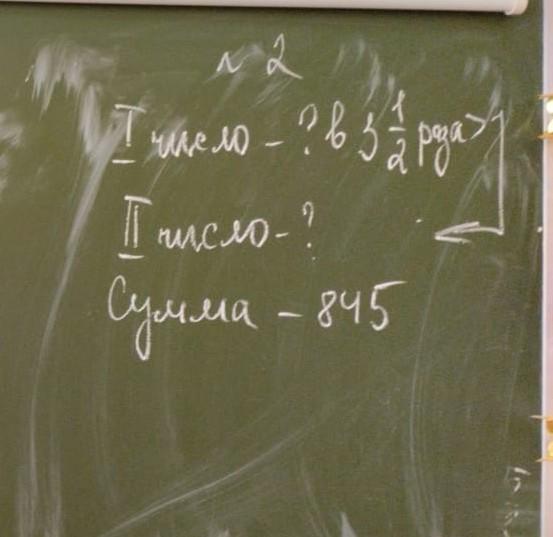 № 2
I число - ? в 5 1/2 раза >
II число - ?
Сумма - 845